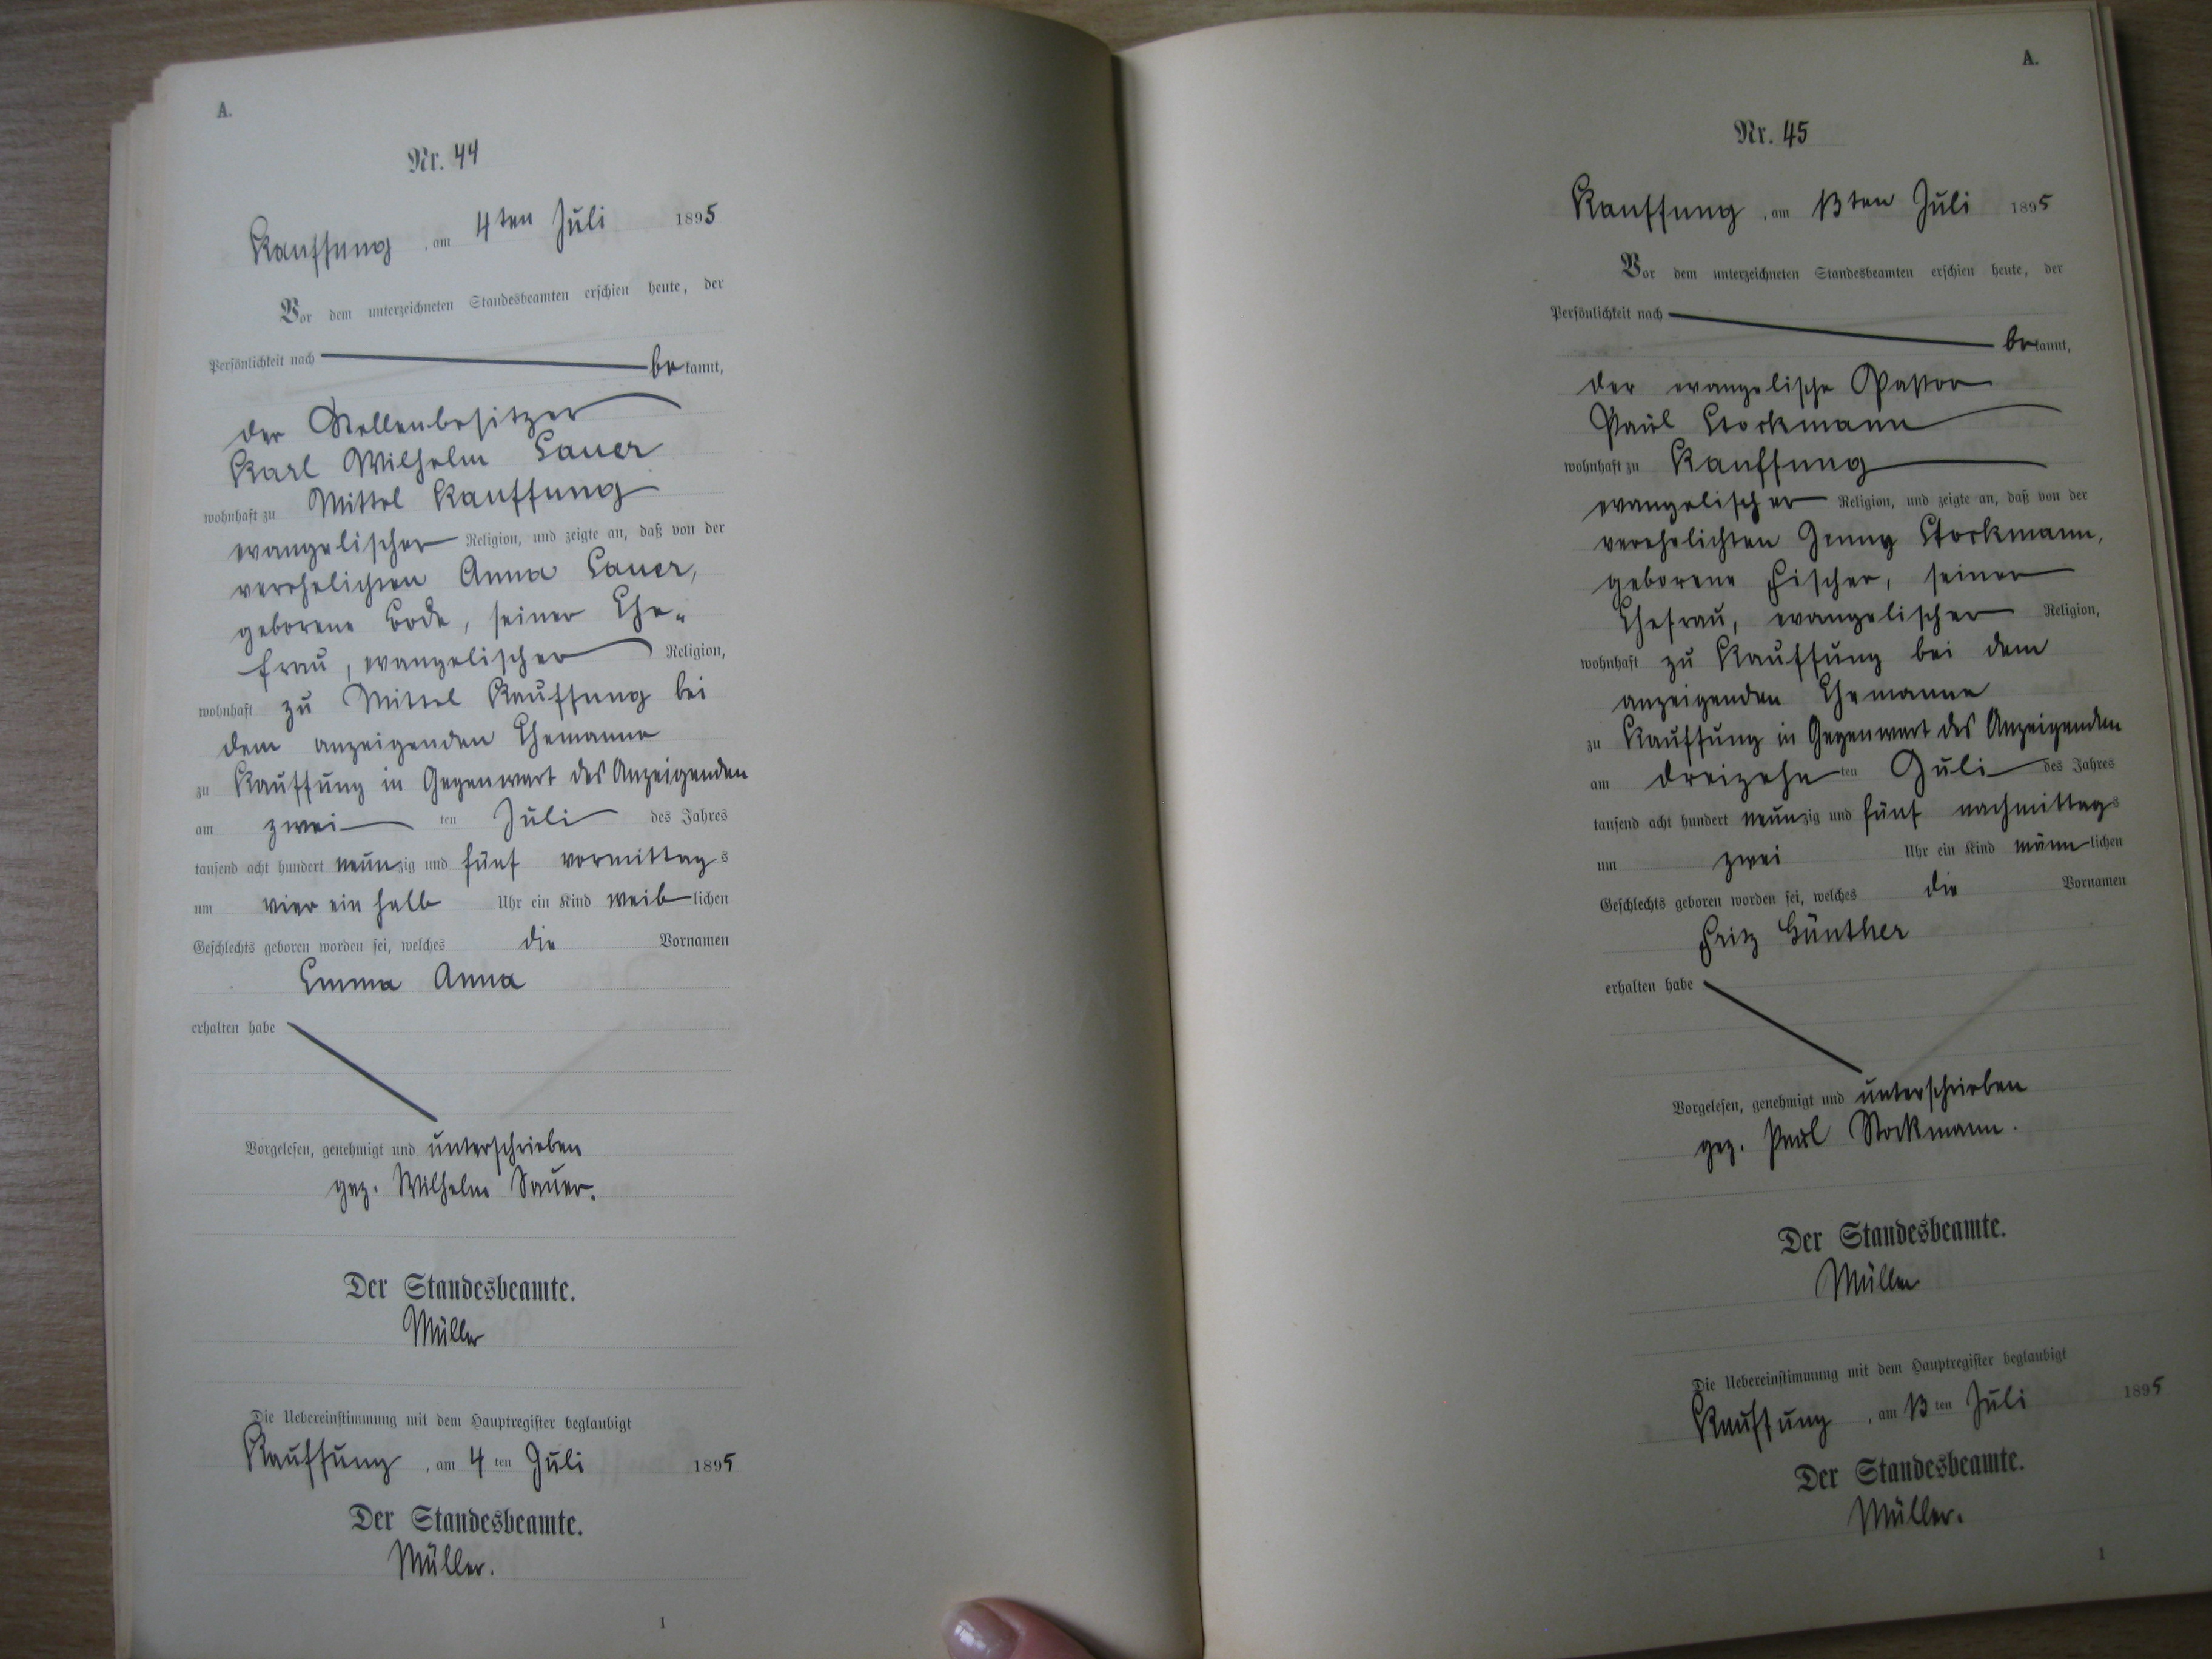 A.
Nr. 44
Kauffung, am 4ten Juli 1895
Vor dem unterzeichneten Standesbeamten erschien heute, der
Persönlichkeit nach be kannt,
der Stellenbesitzer
Karl Wilhelm Sauer
wohnhaft zu Mittel Kauffung
evangelischer Religion, und zeigte an, daß von der
verehelichten Anna Sauer,
geborene, seiner Ehe-
frau, evangelischer Religion,
wohnhaft zu Mittel Kauffung bei
dem anzeigenden Ehemanne
zu Kauffung in Gegenwart des Anzeigenden
am zwei ten Juli des Jahres
tausend acht hundert neunzig und fünf vormittags
um vier ein halb Uhr ein Kind weiblichen
Geschlechts geboren worden sei, welches die Vornamen
Emma Anna
erhalten habe
Vorgelesen, genehmigt und unterschrieben
gez. Wilhelm Sauer.
Der Standesbeamte.
Müller
Die Uebereinstimmung mit dem Hauptregister beglaubigt
Kauffung, am 4 ten Juli 1895
Der Standesbeamte.
Müller.
1
A.
Nr. 45
Kauffung, am 13ten Juli 1895
Vor dem unterzeichneten Standesbeamten erschien heute, der
Persönlichkeit nach be kannt,
der evangelische Pastor
Paul Stockmann
wohnhaft zu Kauffung
evangelischer Religion, und zeigte an, daß von der
verehelichten Jenny Stockmann,
geborene Fischer, seiner
Ehefrau, evangelischer Religion,
wohnhaft zu Kauffung bei dem
anzeigenden Ehemanne
zu Kauffung in Gegenwart des Anzeigenden
am dreizehn ten Juli des Jahres
tausend acht hundert neunzig und fünf nachmittags
um zwei Uhr ein Kind männlichen
Geschlechts geboren worden sei, welches die Vornamen
Fritz Günther
erhalten habe
Vorgelesen, genehmigt und unterschrieben
gez. Paul Stockmann.
Der Standesbeamte.
Müller
Die Uebereinstimmung mit dem Hauptregister beglaubigt
Kauffung, am 13 ten Juli 1895
Der Standesbeamte.
Müller.
1